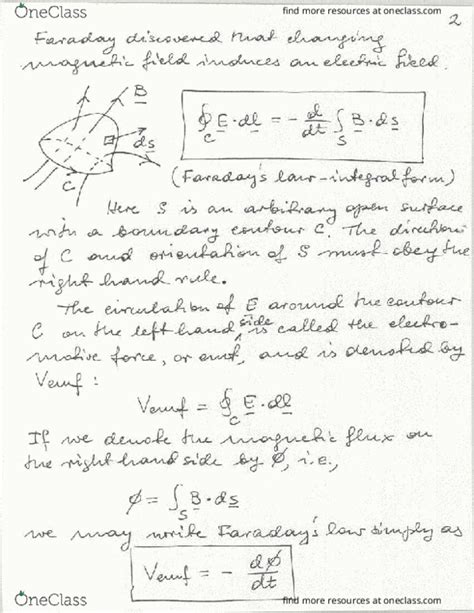 OneClass
find more resources at oneclass.com
2
Faraday discovered that changing
magnetic field induces an electric field.
B
ds
C
∮_C E · dl = - d/dt ∫_S B · ds
(Faraday's law - integral form)
Here S is an arbitrary open surface
with a boundary contour C. The direction
of C and orientation of S must obey the
right hand rule.
The circulation of E around the contour
C on the left hand side is called the electro-
motive force, or emf, and is denoted by
Vemf :
Vemf = ∮_C E · dl
If we denote the magnetic flux on
the right hand side by ∅, i.e.,
∅ = ∫_S B · ds
we may write Faraday's law simply as
Vemf = - d∅/dt
OneClass
find more resources at oneclass.com